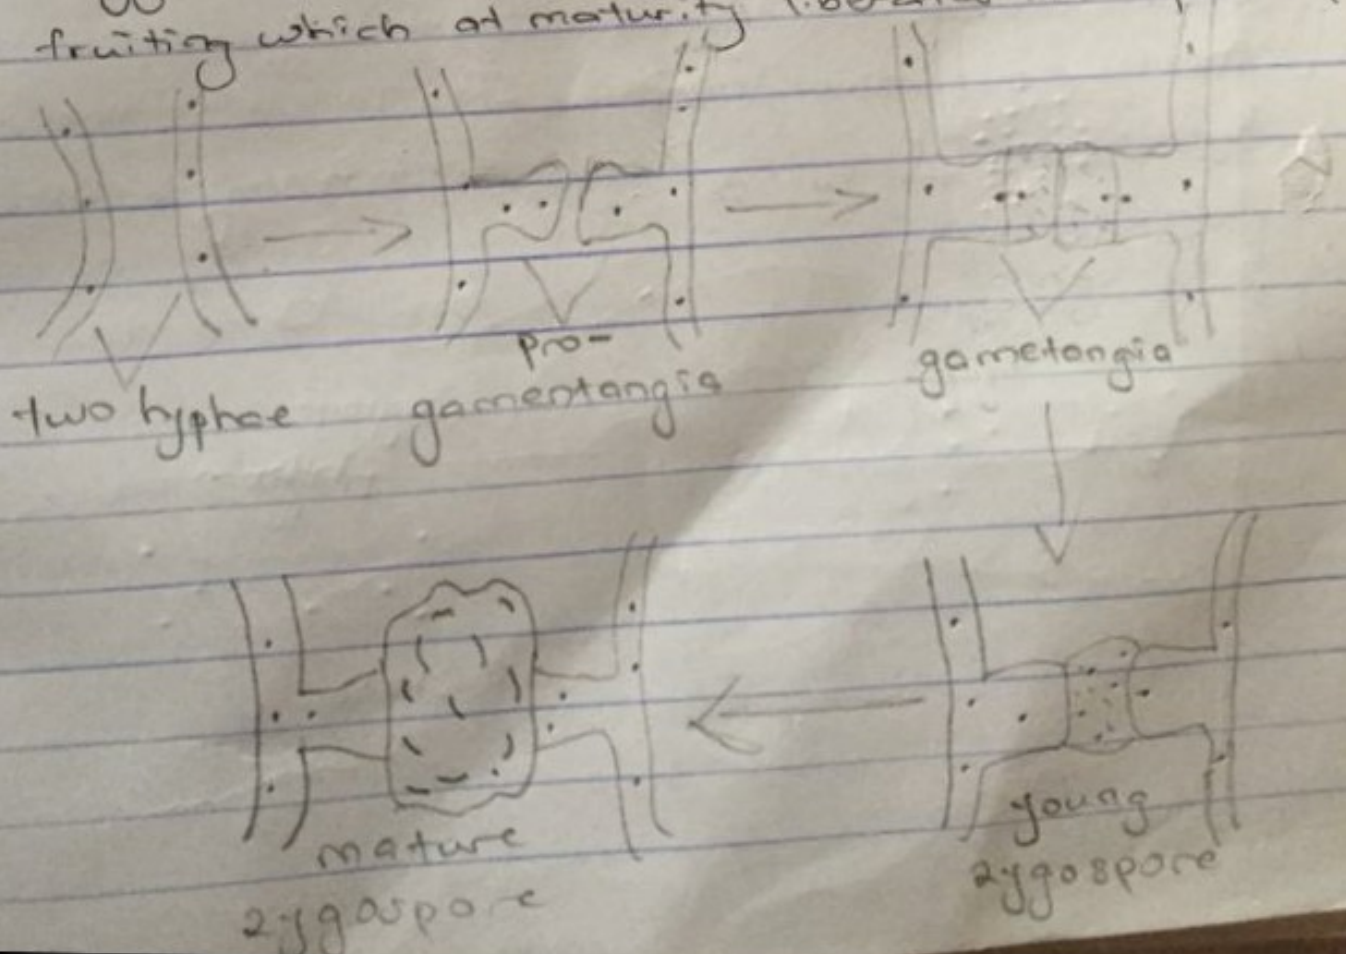 fruiting which at maturity
two hyphae
pro-
gamentangia
gametangia
young
zygospore
mature
zygospore